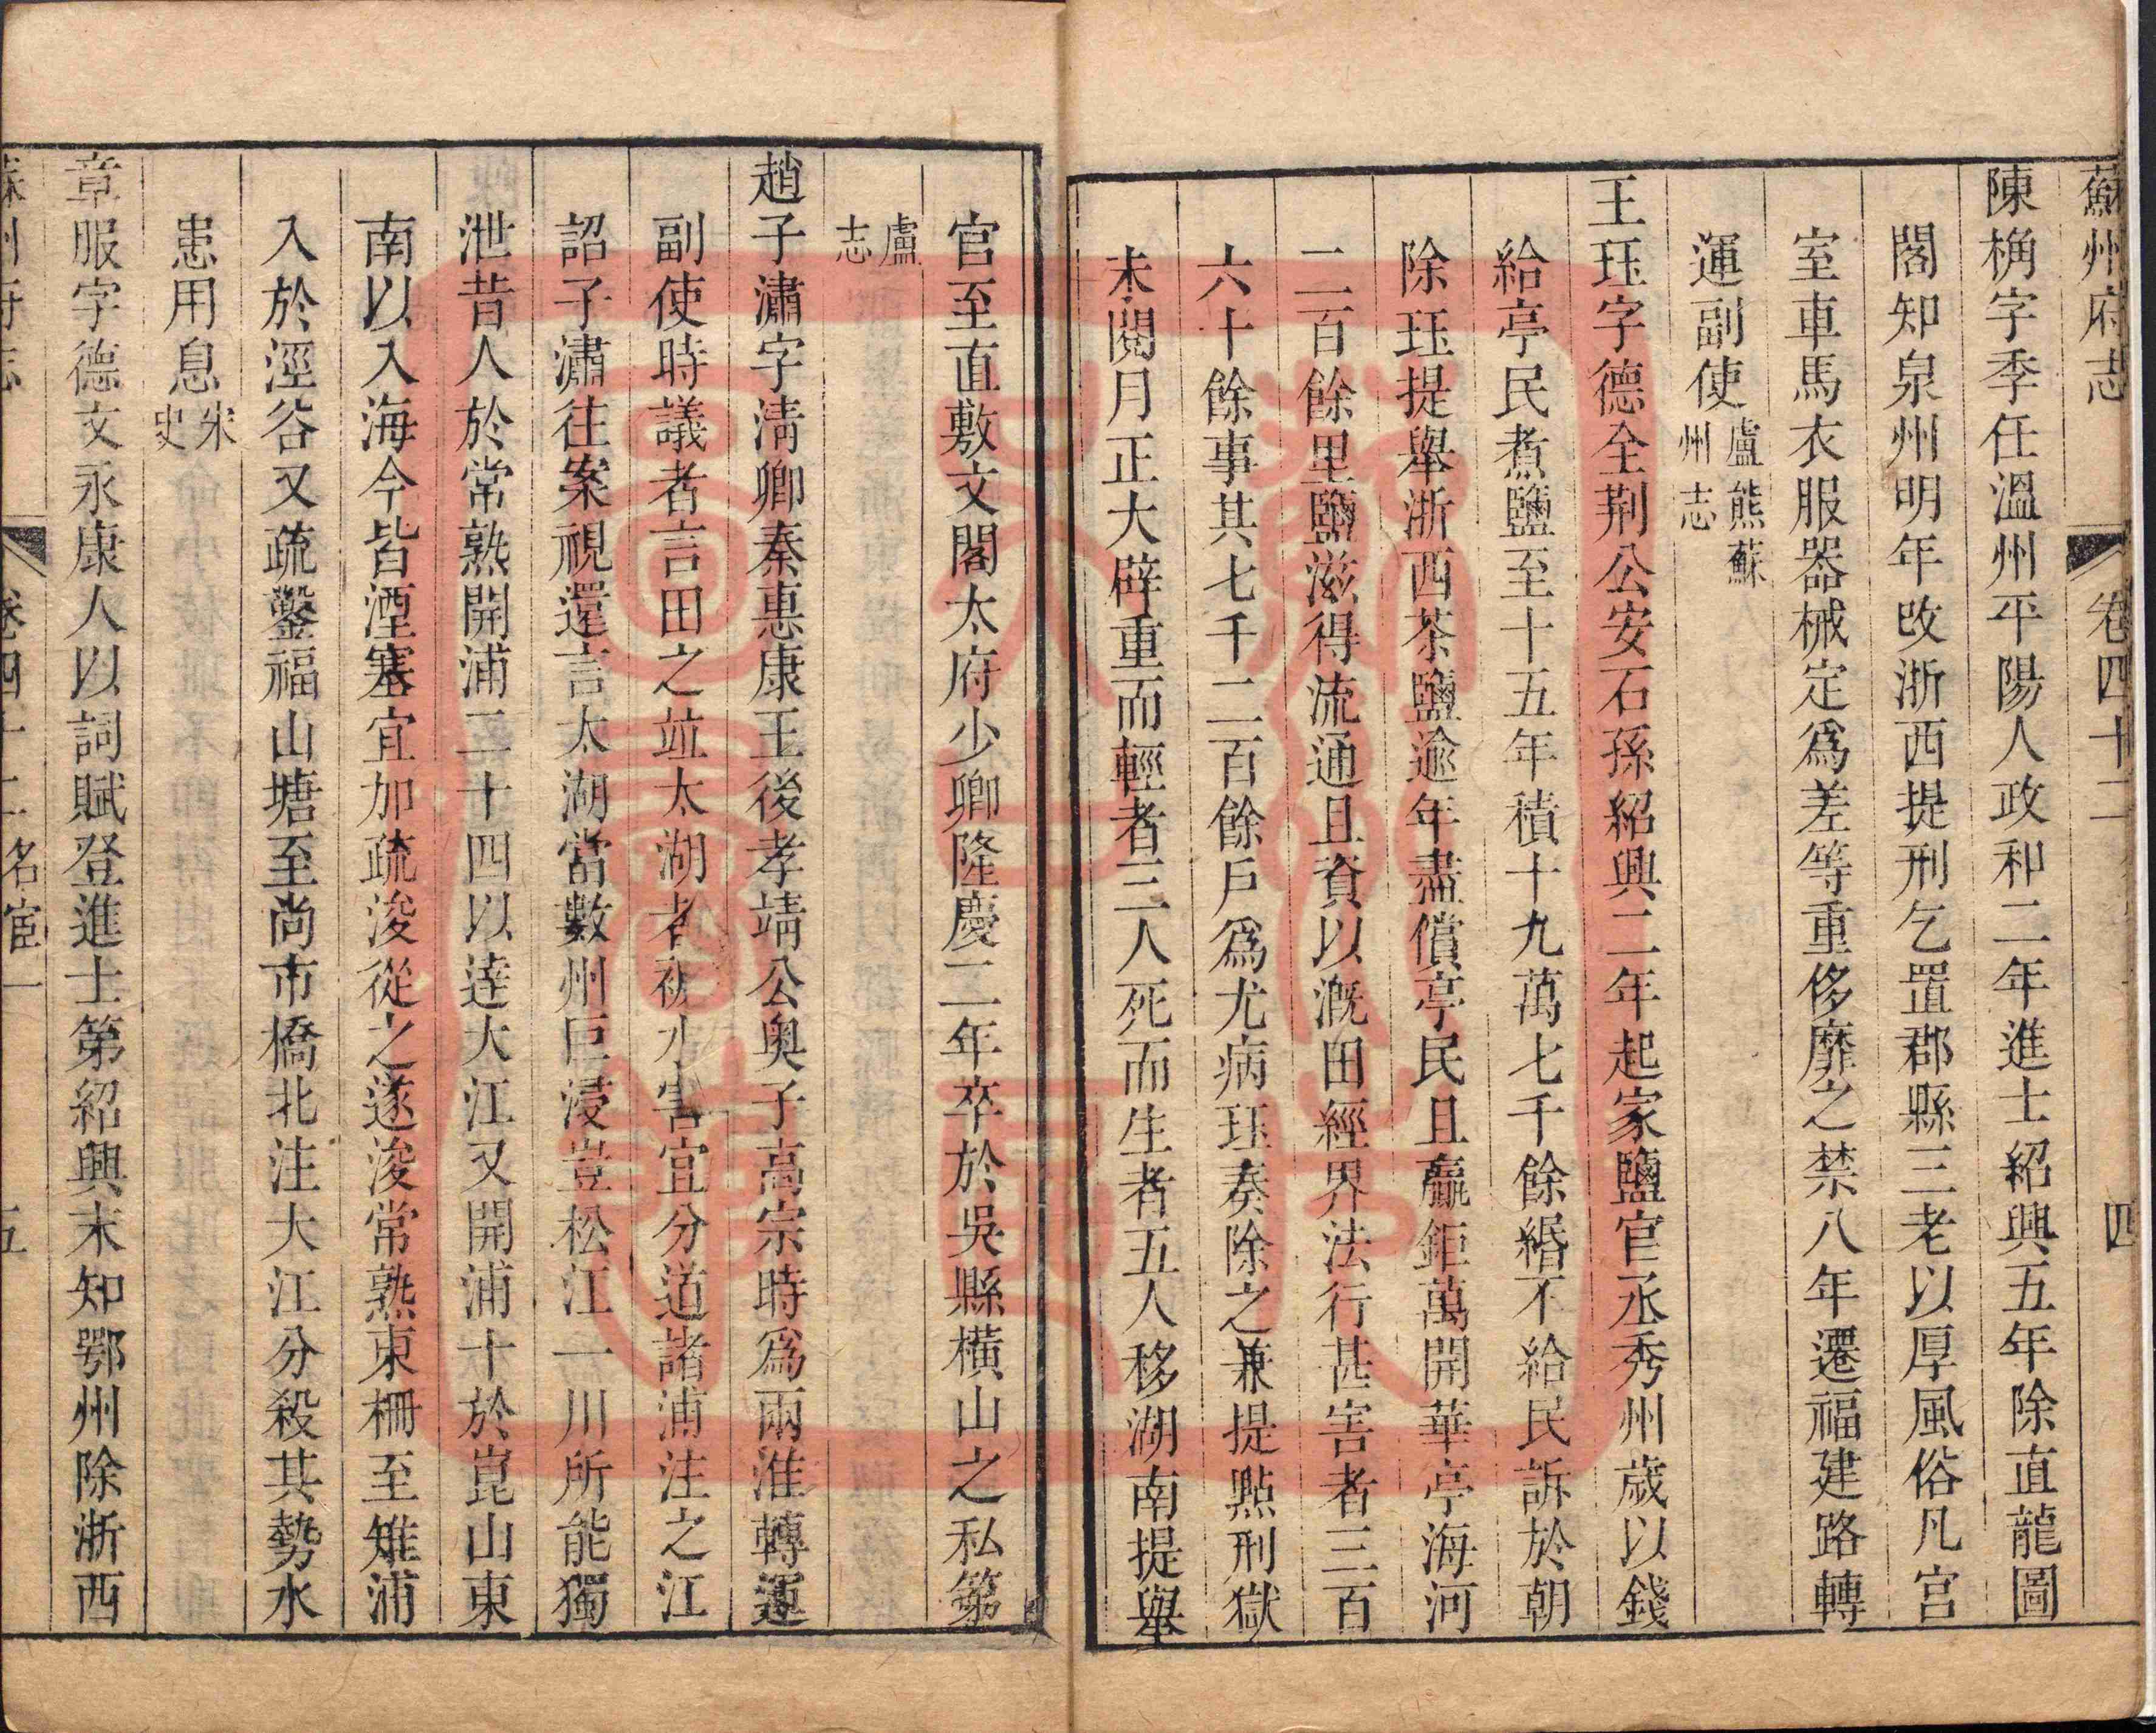 蘇州府志 卷四十二 四
陳桷字季任溫州平陽人政和二年進士紹興五年除直龍圖
閣知泉州明年改浙西提刑乞置郡縣三老以厚風俗凡宫
室車馬衣服器械定爲差等重侈靡之禁八年遷福建路轉
運副使盧熊蘇州志
王珏字德全荆公安石孫紹興二年起家鹽官丞秀州歲以錢
給亭民煮鹽至十五年積十九萬七千餘緡不給民訴於朝
除珏提舉浙西茶鹽逾年盡償亭民且贏鉅萬開華亭海河
二百餘里鹽滋得流通且資以溉田經界法行甚害者三百
六十餘事其七千二百餘戶爲尤病珏奏除之兼提點刑獄
未閱月正大辟重而輕者三人死而生者五人移湖南提舉
官至直敷文閣太府少卿隆慶二年卒於吳縣橫山之私第
盧志
趙子潚字清卿秦惠康王後孝靖公奥子高宗時爲兩淮轉運
副使時議者言田之竝太湖者被水害宜分道諸浦注之江
詔子潚往案視還言太湖當數州巨浸豈松江一川所能獨
泄昔人於常熟開浦二十四以達大江又開浦十於崑山東
南以入海今皆湮塞宜加疏浚從之遂浚常熟東柵至雉浦
入於涇谷又疏鑿福山塘至尚市橋北注大江分殺其勢水
患用息宋史
章服字德文永康人以詞賦登進士第紹興末知鄂州除浙西
蘇州府志 卷四十二名宦一 五